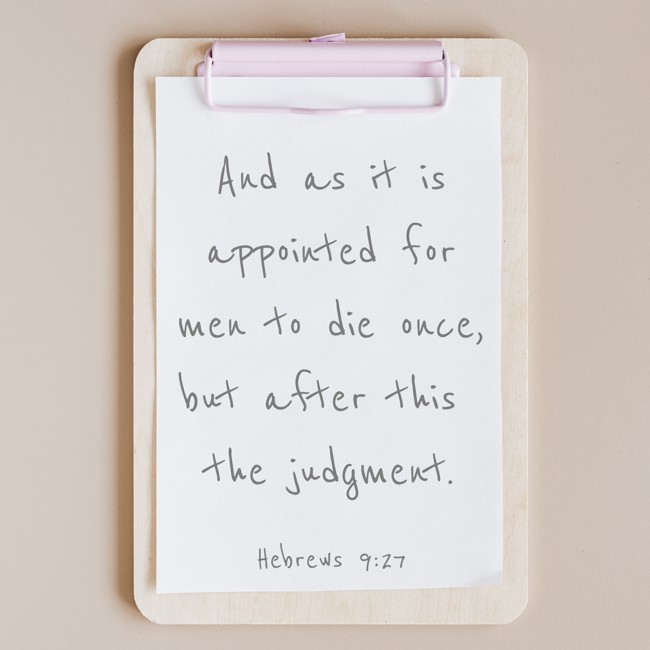 And as it is
appointed for
men to die once,
but after this
the judgment.
Hebrews 9:27